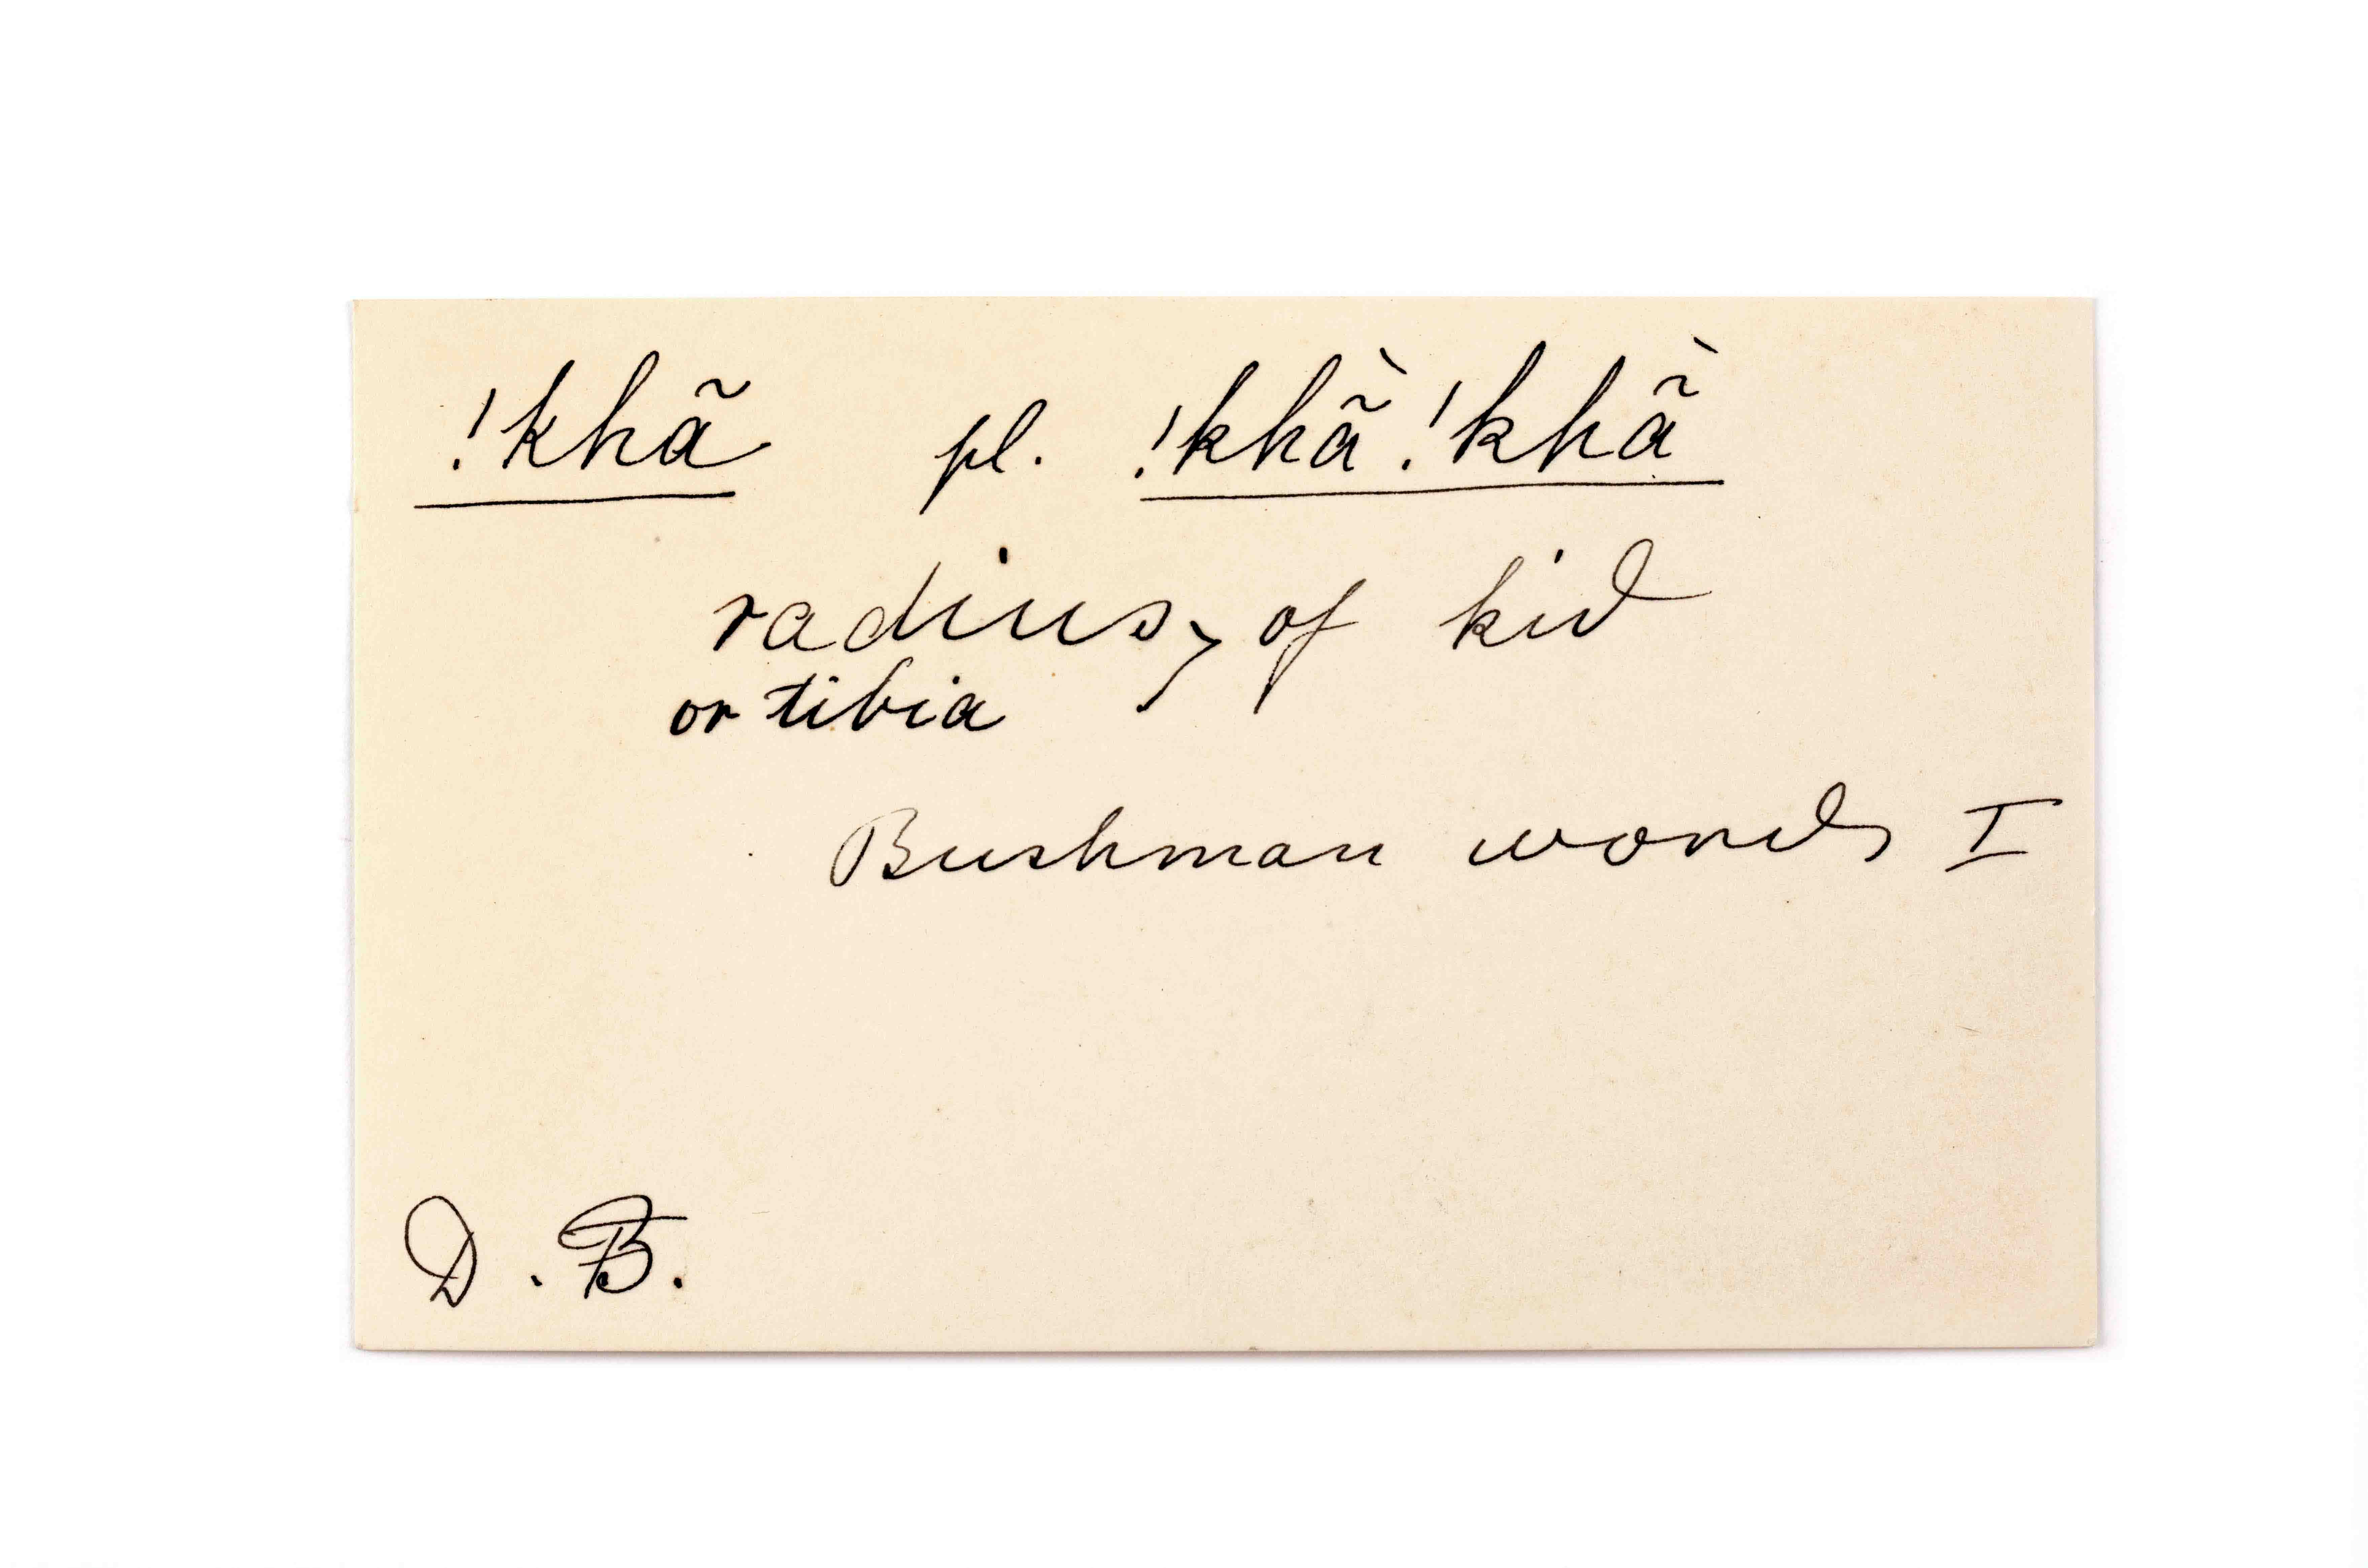 !khã pl. !khã̀ !khã̀
radius, of kid
or tibia
Bushman words I
D. B.